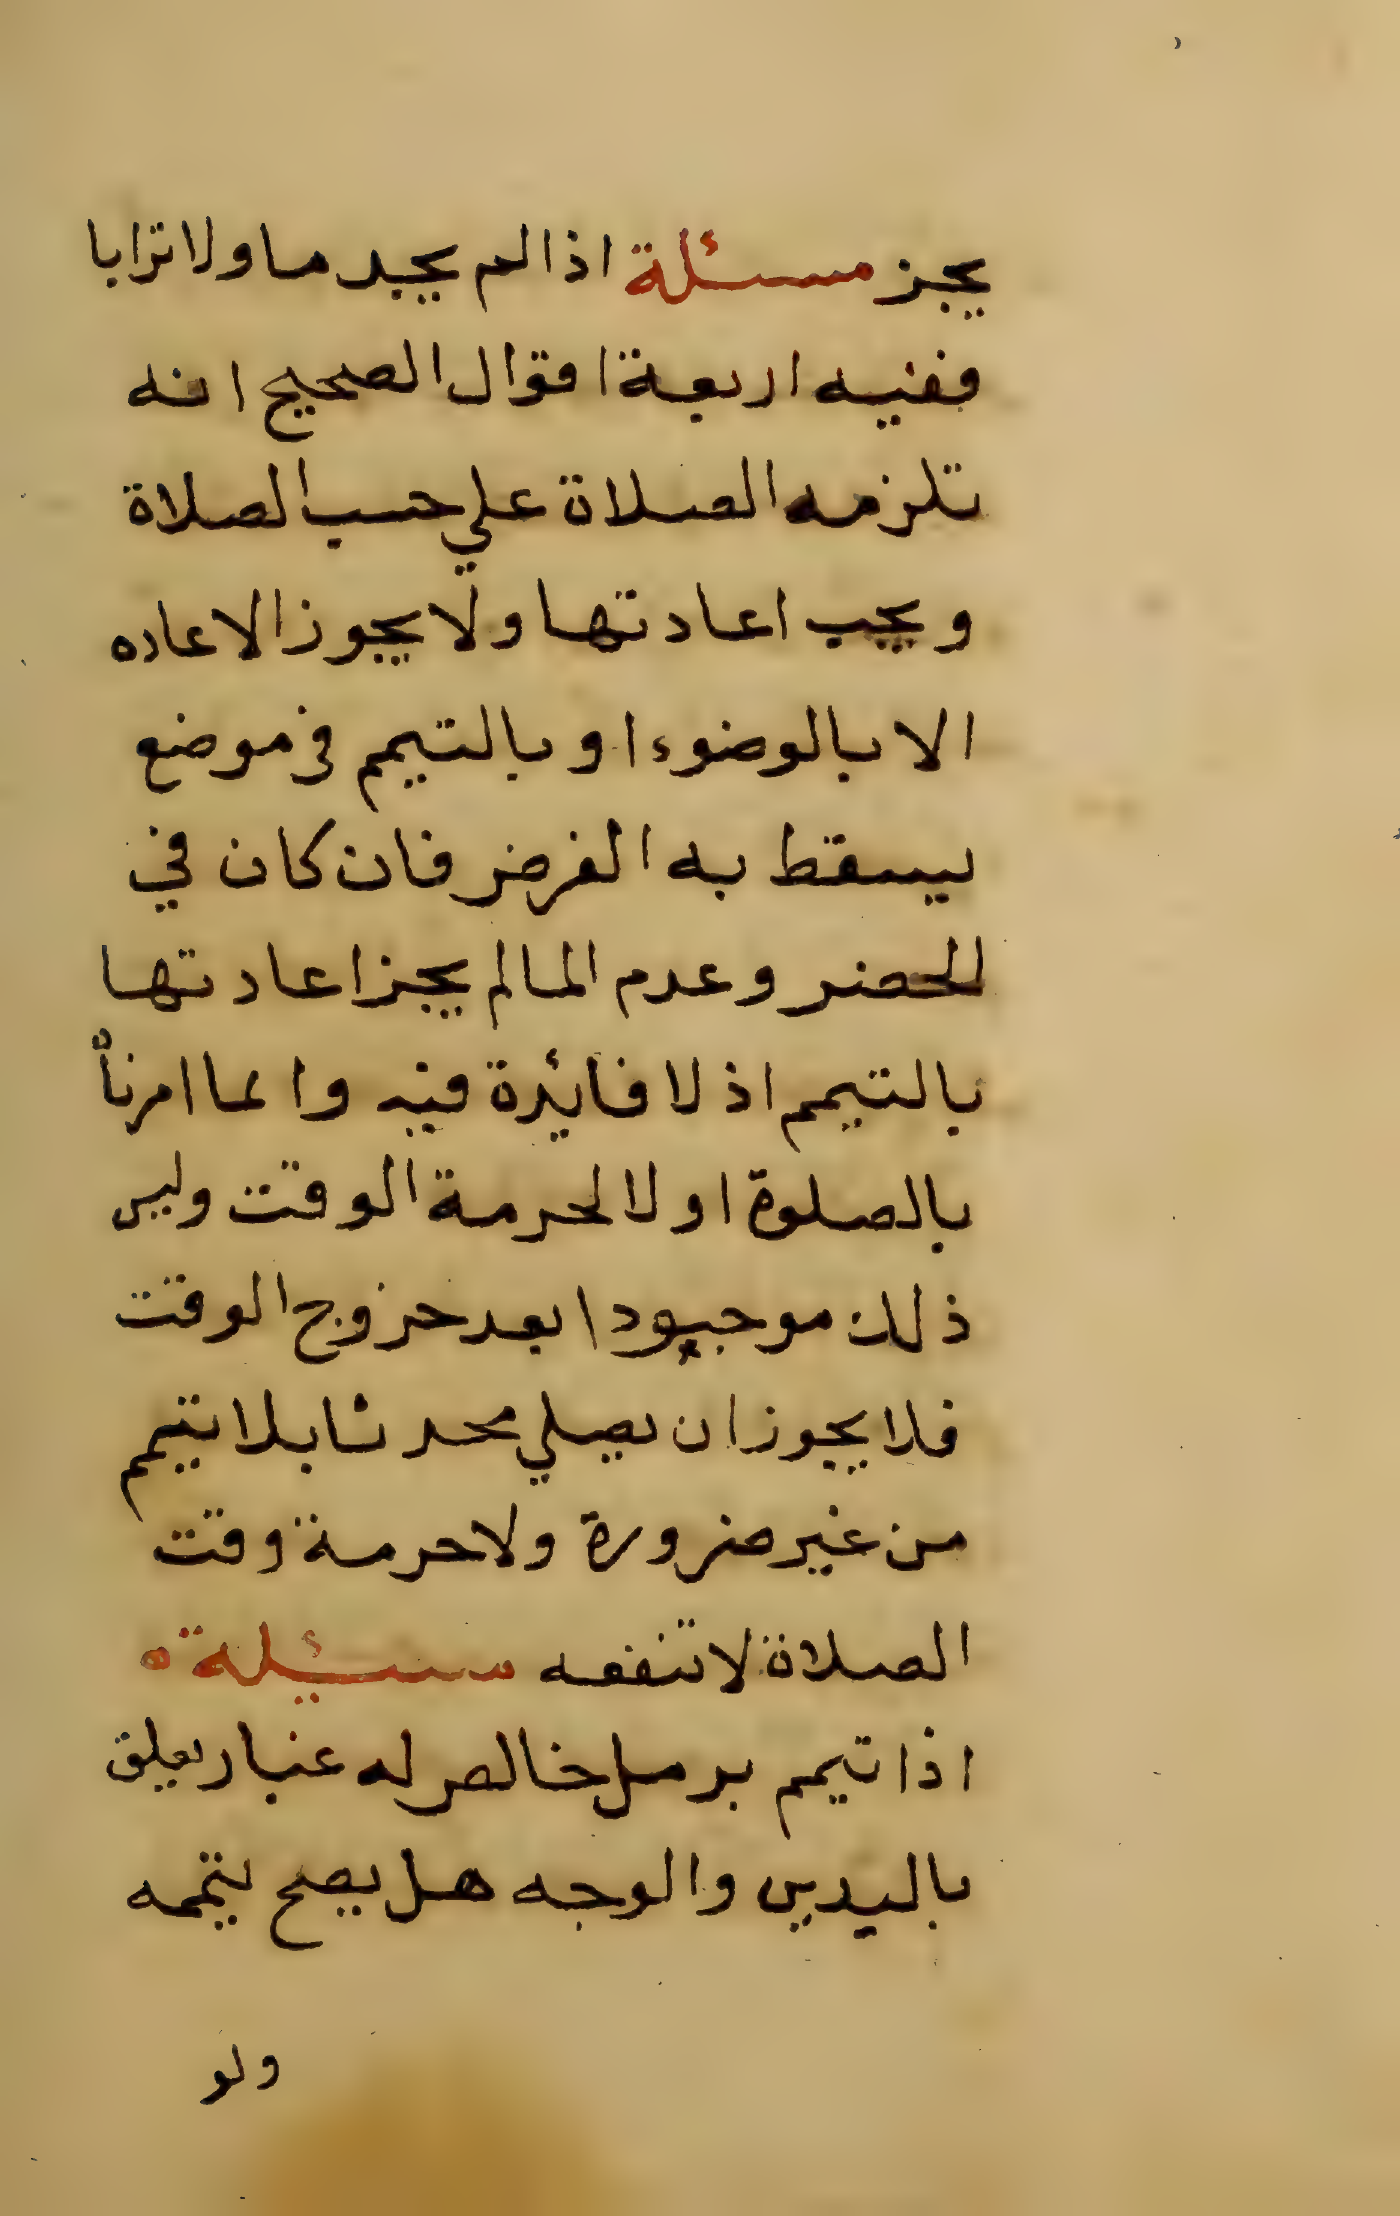 يجز مسئلة اذا لم يجد ما ولا ترابا
ففيه اربعة اقوال الصحيح انه
تلزمه الصلاة علي حسب الصلاة
ويجب اعادتها ولا يجوز الاعاده
الا بالوضوء او بالتيمم في موضع
يسقط به الفرض فان كان في
الحضر وعدم الما لم يجز اعادتها
بالتيمم اذ لا فائدة فيه وانما امرناه
بالصلوة اولا لحرمة الوقت وليس
ذلك موجودا بعد خروج الوقت
فلا يجوز ان يصلي محدثا بلا تيمم
من غير ضرورة ولا حرمة وقت
الصلاة لا تنفعه مسئلة ه
اذا تيمم برمل خالص له غبار يعلق
باليدين والوجه هل يصح تيممه
ولو